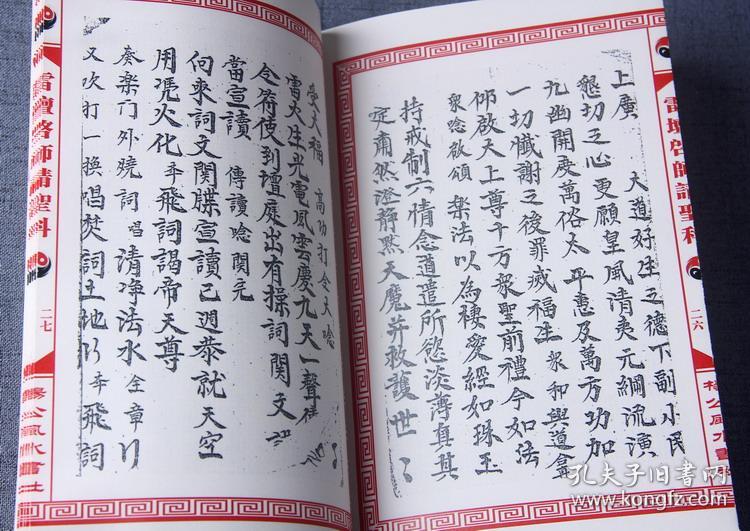 上廣 大道好生之德下副小民
懇切之心更願皇風清夷元綱流演
九幽開度萬俗太平惠及萬方功加
一切懺謝之後罪滅福生 衆和與道合
仰啟天上尊千方衆聖前禮今如法
衆唸啟頌 樂法以為棲愛經如珠玉
持戒制六情念道遣所慾淡薄真其
定肅然澄静黙天魔并敉護世
雷壇啓師請聖科
二六
楊公風水書
受大福 高功打令大唸
雷火生光電風雲慶九天一聲
令符使到壇庭出有操詞関文
當宣讀 傳讀唸関完
向来詞文関牒宣讀已週恭就天空
用凴火化 飛詞謁帝天尊
奏樂门外曉詞 唱清净法水 全章
又吹打一换唱焚詞土地 飛詞
雷壇啓師請聖科
二七
楊公風水書社
孔夫子旧书网
www.kongfz.com